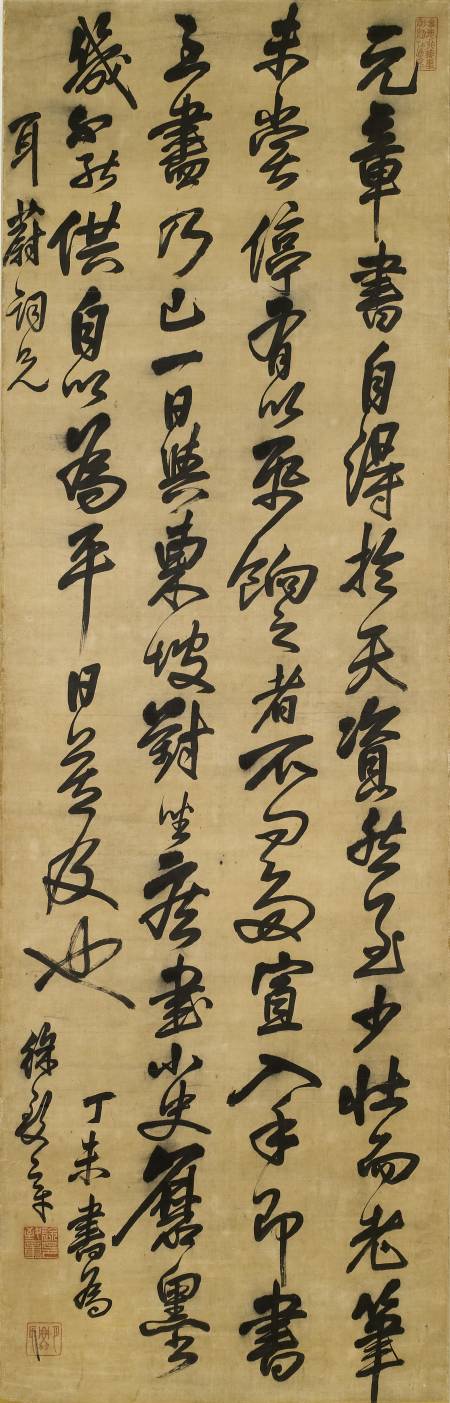 元章書自得於天資然至少壯而老筆
未嘗停有以帋餉之者不問多寡入手即書
至盡乃已一日與東坡對坐疾書小史磨墨
幾不能供自以為平日莫及也
丁未書為
耳蔚詞兄
徐